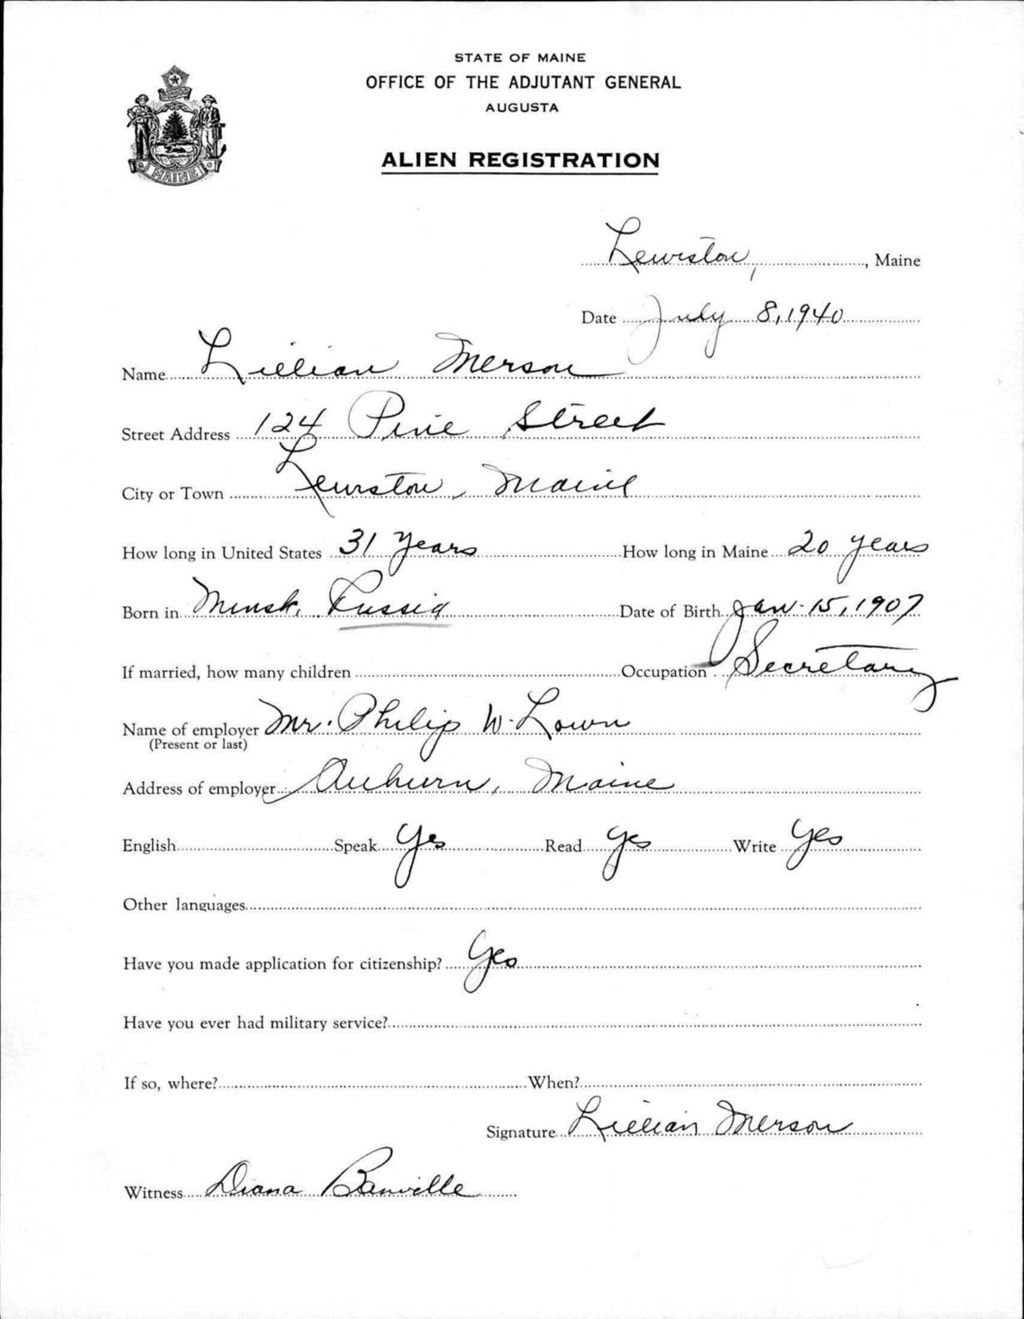 STATE OF MAINE
OFFICE OF THE ADJUTANT GENERAL
AUGUSTA
MAINE
ALIEN REGISTRATION
Lewiston, , Maine
Date July 8, 1940
Name Lillian Merson
Street Address 124 Pine Street
City or Town Lewiston, Maine
How long in United States 31 years How long in Maine 20 years
Born in Minsk, Russia Date of Birth Jan. 15, 1907
If married, how many children Occupation Secretary
Name of employer Mr. Philip W. Lown
(Present or last)
Address of employer Auburn, Maine
English Speak Yes Read Yes Write Yes
Other languages
Have you made application for citizenship? Yes
Have you ever had military service?
If so, where? When?
Signature Lillian Merson
Witness Diana Banville